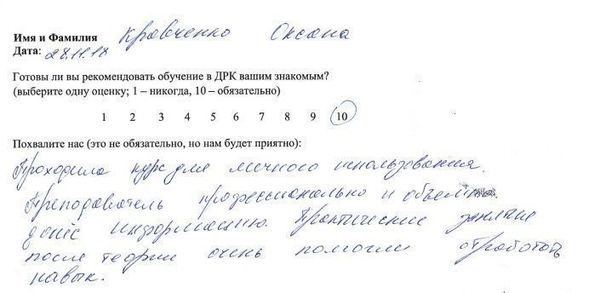 Имя и Фамилия Кравченко Оксана
Дата: 28.11.18
Готовы ли вы рекомендовать обучение в ДРК вашим знакомым?
(выберите одну оценку; 1 – никогда, 10 – обязательно)
1 2 3 4 5 6 7 8 9 10
Похвалите нас (это не обязательно, но нам будет приятно):
Проходила курс для личного использования.
Преподаватель профессионально и объемно
донёс информацию. Практические занятие
после теории очень помогли отработать
навык.